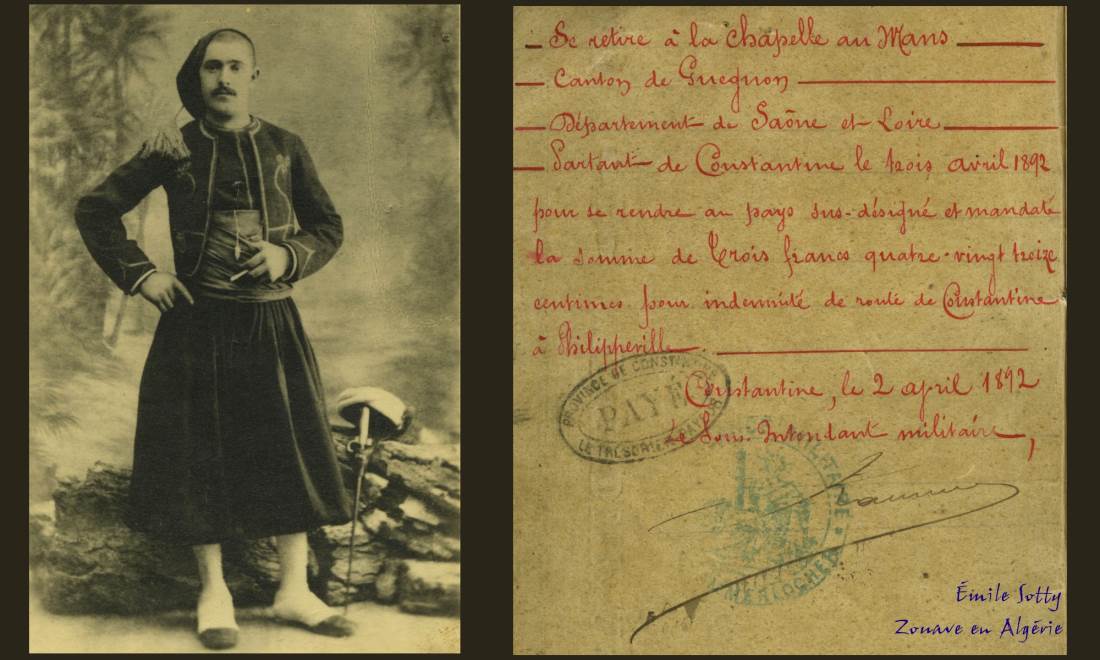 Se retire à la Chapelle au Mans
Canton de Gueugnon
Département de Saône et Loire
Partant de Constantine le trois avril 1892
pour se rendre au pays sus-désigné et mandaté
la somme de Trois francs quatre-vingt treize
centimes pour indemnité de route de Constantine
à Philippeville
PROVINCE DE CONSTANTINE
PAYÉ
LE TRÉSORIER PAYEUR
Constantine, le 2 april 1892
Le Sous Intendant militaire,
MILITAIRE
Émile Sotty
Zouave en Algérie